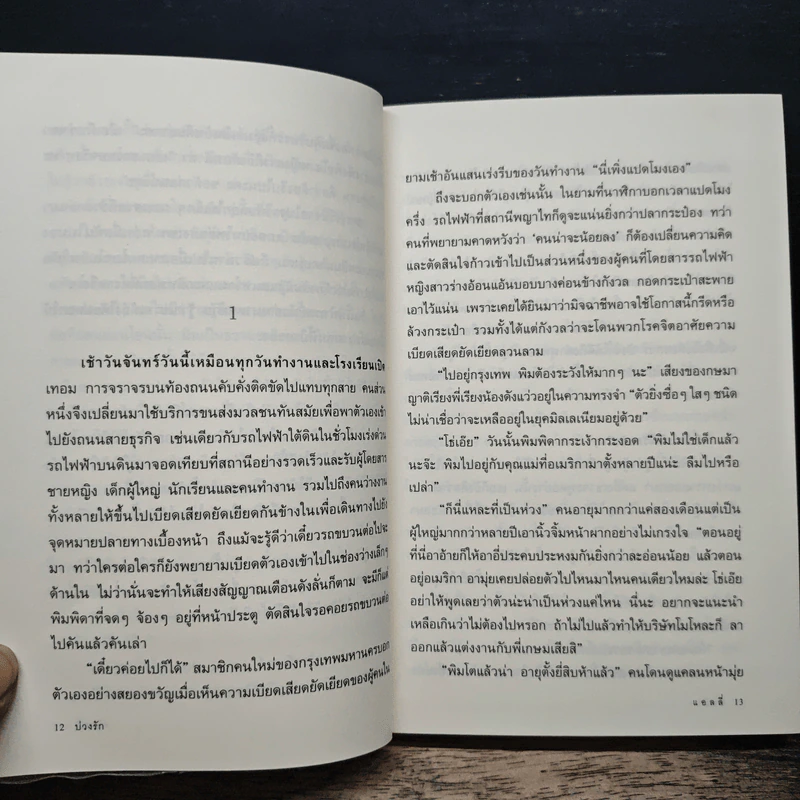 1
เช้าวันจันทร์วันนี้เหมือนทุกวันทำงานและโรงเรียนเปิด
เทอม การจราจรบนท้องถนนคับคั่งติดขัดไปแทบทุกสาย คนส่วน
หนึ่งจึงเปลี่ยนมาใช้บริการขนส่งมวลชนทันสมัยเพื่อพาตัวเองเข้า
ไปยังถนนสายธุรกิจ เช่นเดียวกับรถไฟฟ้าใต้ดินในชั่วโมงเร่งด่วน
รถไฟฟ้าบนดินมาจอดเทียบที่สถานีอย่างรวดเร็วและรับผู้โดยสาร
ชายหญิง เด็กผู้ใหญ่ นักเรียนและคนทำงาน รวมไปถึงคนว่างงาน
ทั้งหลายให้ขึ้นไปเบียดเสียดยัดเยียดกันข้างในเพื่อเดินทางไปยัง
จุดหมายปลายทางเบื้องหน้า ถึงแม้จะรู้ดีว่าเดี๋ยวรถขบวนต่อไปจะ
มา ทว่าใครต่อใครก็ยังพยายามเบียดตัวเองเข้าไปในช่องว่างเล็กๆ
ด้านใน ไม่ว่านั่นจะทำให้เสียงสัญญาณเตือนดังลั่นก็ตาม จะมีก็แต่
พิมพิดาที่จดๆ จ้องๆ อยู่ที่หน้าประตู ตัดสินใจรอคอยรถขบวนต่อ
ไปคันแล้วคันเล่า
“เดี๋ยวค่อยไปก็ได้” สมาชิกคนใหม่ของกรุงเทพมหานครบอก
ตัวเองอย่างสยองขวัญเมื่อเห็นความเบียดเสียดยัดเยียดของผู้คนใน
12 บ่วงรัก
ยามเช้าอันแสนเร่งรีบของวันทำงาน “นี่เพิ่งแปดโมงเอง”
ถึงจะบอกตัวเองเช่นนั้น ในยามที่นาฬิกาบอกเวลาแปดโมง
ครึ่ง รถไฟฟ้าที่สถานีพญาไทก็ดูจะแน่นยิ่งกว่าปลากระป๋อง ทว่า
คนที่พยายามคาดหวังว่า ‘คนน่าจะน้อยลง’ ก็ต้องเปลี่ยนความคิด
และตัดสินใจก้าวเข้าไปเป็นส่วนหนึ่งของผู้คนที่โดยสารรถไฟฟ้า
หญิงสาวร่างอ้อนแอ้นบอบบางค่อนข้างกังวล กอดกระเป๋าสะพาย
เอาไว้แน่น เพราะเคยได้ยินมาว่ามิจฉาชีพอาจใช้โอกาสนี้กรีดหรือ
ล้วงกระเป๋า รวมทั้งได้แต่กังวลว่าจะโดนพวกโรคจิตอาศัยความ
เบียดเสียดยัดเยียดลวนลาม
“ไปอยู่กรุงเทพ พิมต้องระวังให้มากๆ นะ” เสียงของกษมา
ญาติเรียงพี่เรียงน้องดังแว่วอยู่ในความทรงจำ “ตัวยิ่งซื่อๆ ใสๆ ชนิด
ไม่น่าเชื่อว่าจะเหลืออยู่ในยุคมิลเลเนียมอยู่ด้วย”
“โช่เอ๊ย” วันนั้นพิมพิดากระเง้ากระงอด “พิมไม่ใช่เด็กแล้ว
นะจ๊ะ พิมไปอยู่กับคุณแม่ที่อเมริกามาตั้งหลายปีแน่ะ ลืมไปหรือ
เปล่า”
“ก็นี่แหละที่เป็นห่วง” คนอายุมากกว่าแค่สองเดือนแต่เป็น
ผู้ใหญ่มากกว่าหลายปีเอานิ้วจิ้มหน้าผากอย่างไม่เกรงใจ “ตอนอยู่
ที่นี่อาอ้ายก็ให้อาอี่ประคบประหงมกันยิ่งกว่าละอ่อนน้อย แล้วตอน
อยู่อเมริกา อามุ่ยเคยปล่อยตัวไปไหนมาไหนคนเดียวไหมล่ะ โช่เอ๊ย
อย่าให้พูดเลยว่าตัวน่ะน่าเป็นห่วงแค่ไหน นี่นะ อยากจะแนะนำ
เหลือเกินว่าไม่ต้องไปหรอก ถ้าไม่ไปแล้วทำให้บริษัทโมโหละก็ ลา
ออกแล้วแต่งงานกับพี่เกษมเสียสิ”
“พิมโตแล้วน่า อายุตั้งยี่สิบห้าแล้ว” คนโดนดูแคลนหน้ามุ่ย
แอลลี่ 13